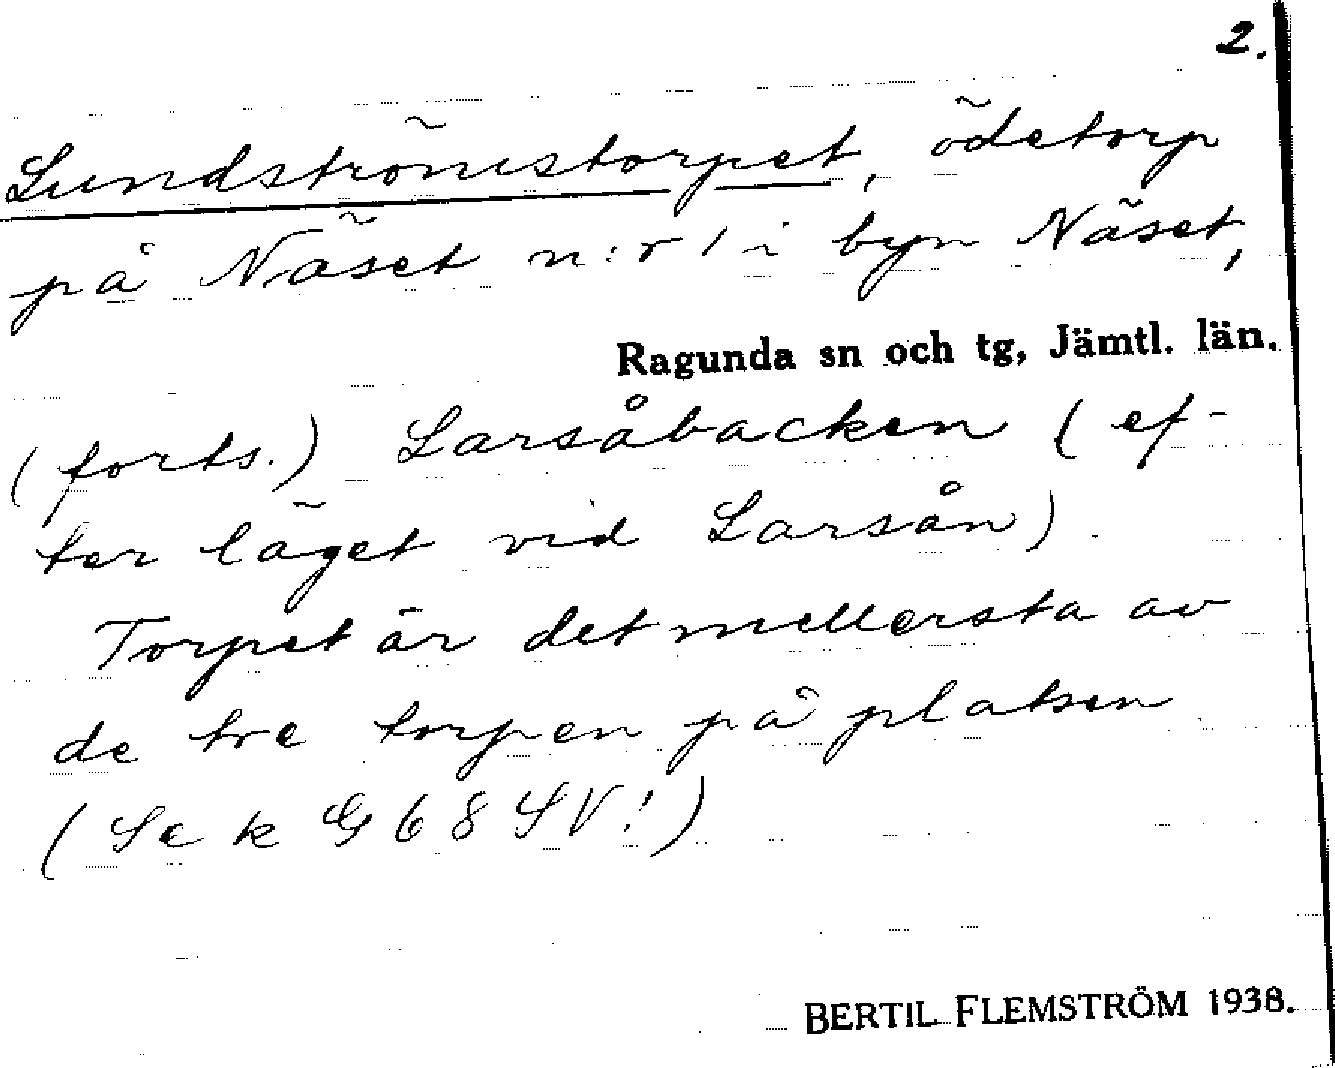 2.
Lundströmstorpet, ödetorp
på Näset n:r 1 i byn Näset,
Ragunda sn och tg, Jämtl. län.
(forts.) Larsåbacken (ef-
ter läget vid Larsån).
Torpet är det mellersta av
de tre torpen på platsen
(Se k G 68 SV!)
BERTIL FLEMSTRÖM 1938.